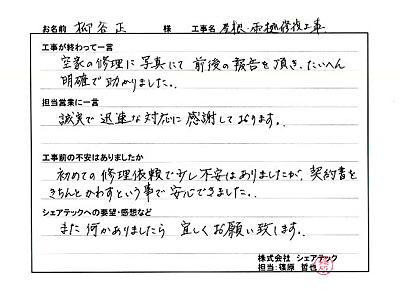 お名前 柳谷 正 様 工事名 屋根・雨樋修復工事
工事が終わって一言
空家の修理に写真にて前後の報告を頂き、たいへん
明確で助かりました。
担当営業に一言
誠実で迅速な対応に感謝しております。
工事前の不安はありましたか
初めての修理依頼で少し不安はありましたが、契約書を
きちんとかわすという事で安心できました。
シェアテックへの要望・感想など
また何かありましたら 宜しくお願い致します。
株式会社 シェアテック
担当:篠原 哲也